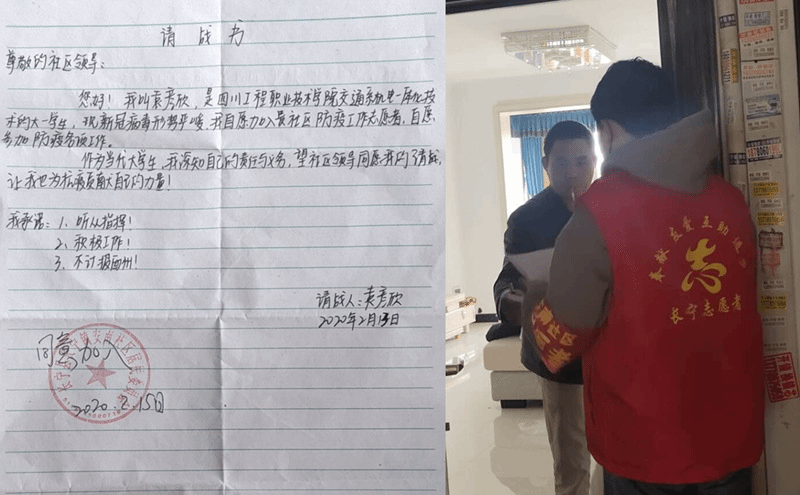 请战书
尊敬的社区领导:
您好!我叫袁彦欣,是四川工程职业技术学院交通系机电一体化技
术的大一学生,现新冠病毒形势严峻,我自愿加入贵社区防疫工作志愿者,自愿
参加防疫各项工作。
作为当代大学生,我深知自己的责任与义务,望社区领导同意我的请战,
让我也为抗疫贡献自己的力量!
我承诺:1、听从指挥!
2、积极工作!
3、不计报酬!
请战人:袁彦欣
2020年2月13日
同意加入
2020.2.15日
奉献 友爱 互助 进步
志
长宁志愿者
社区